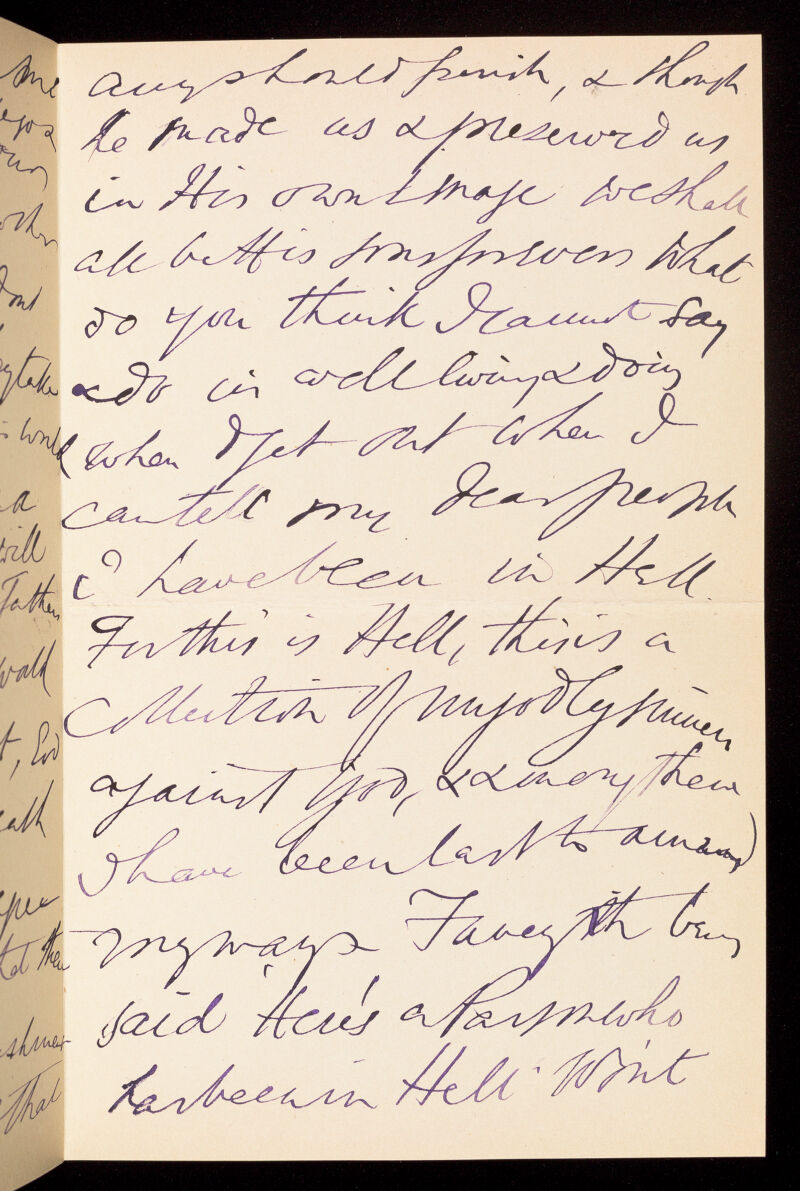 any should perish, & though
he made us & preserved us
in His own Image we shall
all be His sons forever What
do you think I cannot say
& do in well living & doing
when I get out when I
can tell my dear people
I have been in Hell.
For this is Hell, this is a
Collection of ungodly sinners
against God, & among them
I have been cast to amend
my ways Fancy it being
said 'Here's a Parson who
has been in Hell' Won't